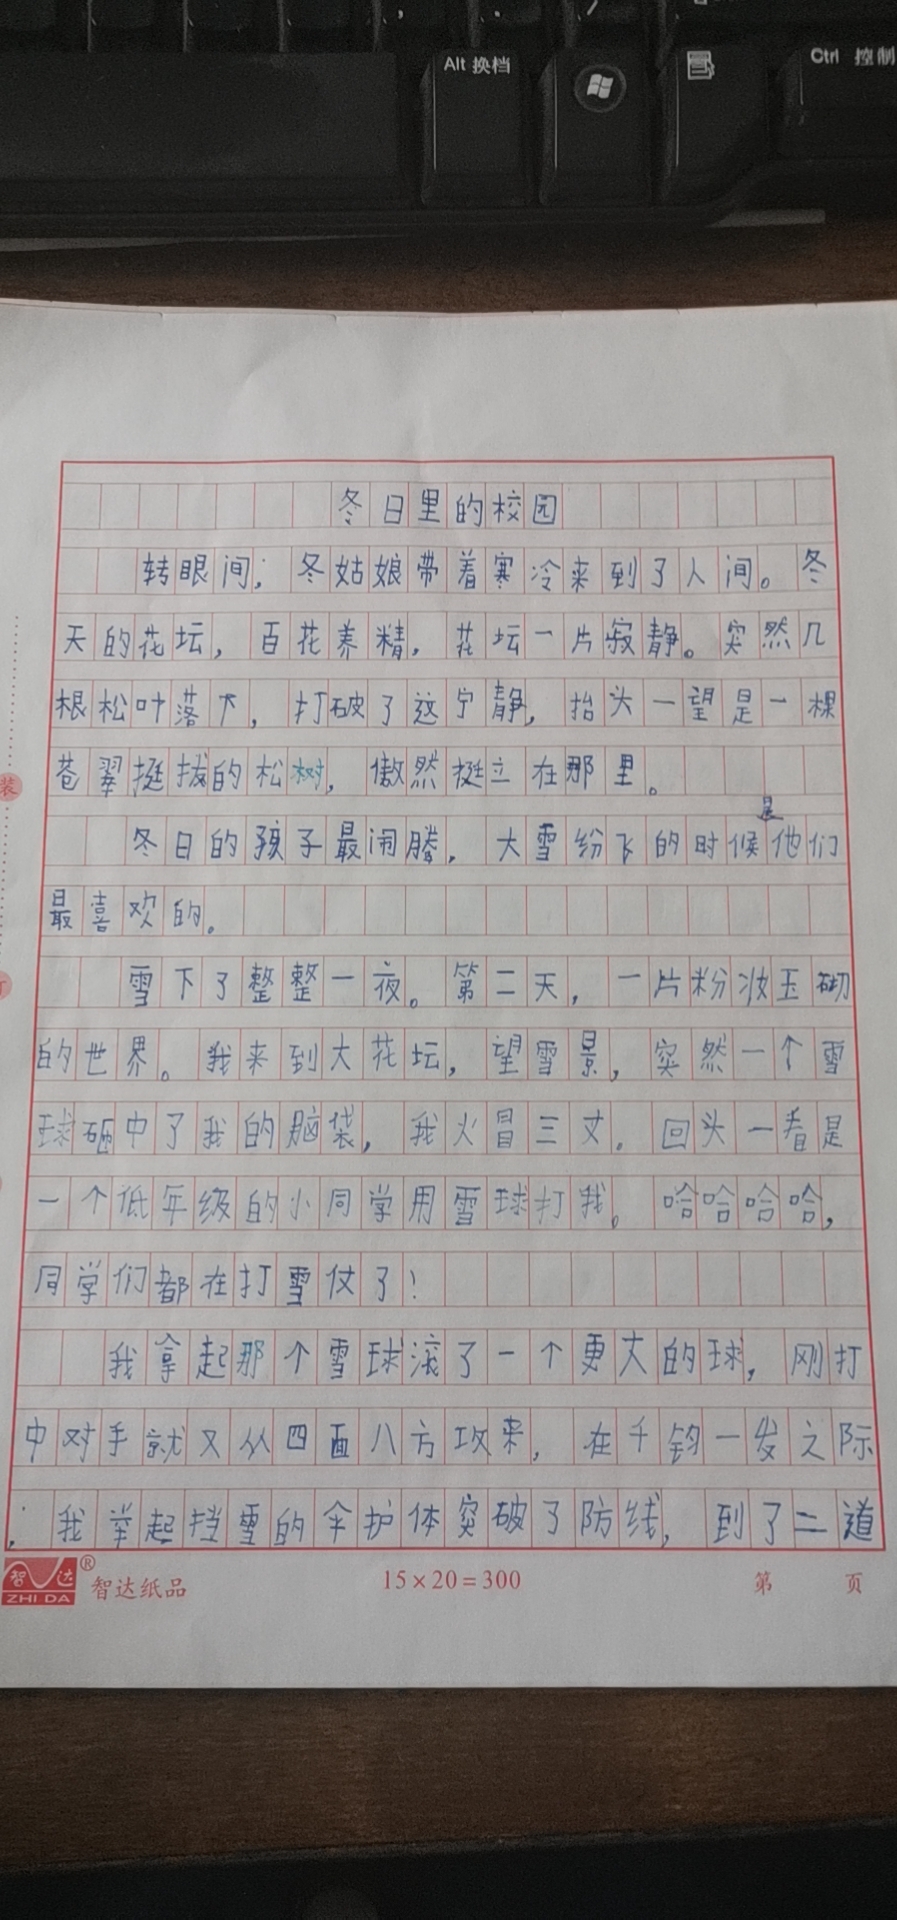 Alt 换档
Ctrl 控制
冬日里的校园
转眼间，冬姑娘带着寒冷来到了人间。冬
天的花坛，百花养精，花坛一片寂静。突然几
根松叶落下，打破了这宁静，抬头一望是一棵
苍翠挺拔的松树，傲然挺立在那里。
冬日的孩子最闹腾，大雪纷飞的时候是他们
最喜欢的。
雪下了整整一夜。第二天，一片粉妆玉砌
的世界。我来到大花坛，望雪景，突然一个雪
球砸中了我的脑袋，我火冒三丈。回头一看是
一个低年级的小同学用雪球打我。哈哈哈哈，
同学们都在打雪仗了！
我拿起那个雪球滚了一个更大的球，刚打
中对手就又从四面八方攻来，在千钧一发之际
，我举起挡雪的伞护体突破了防线，到了二道
装
订
智达
ZHI DA
® 智达纸品
15×20=300
第 页